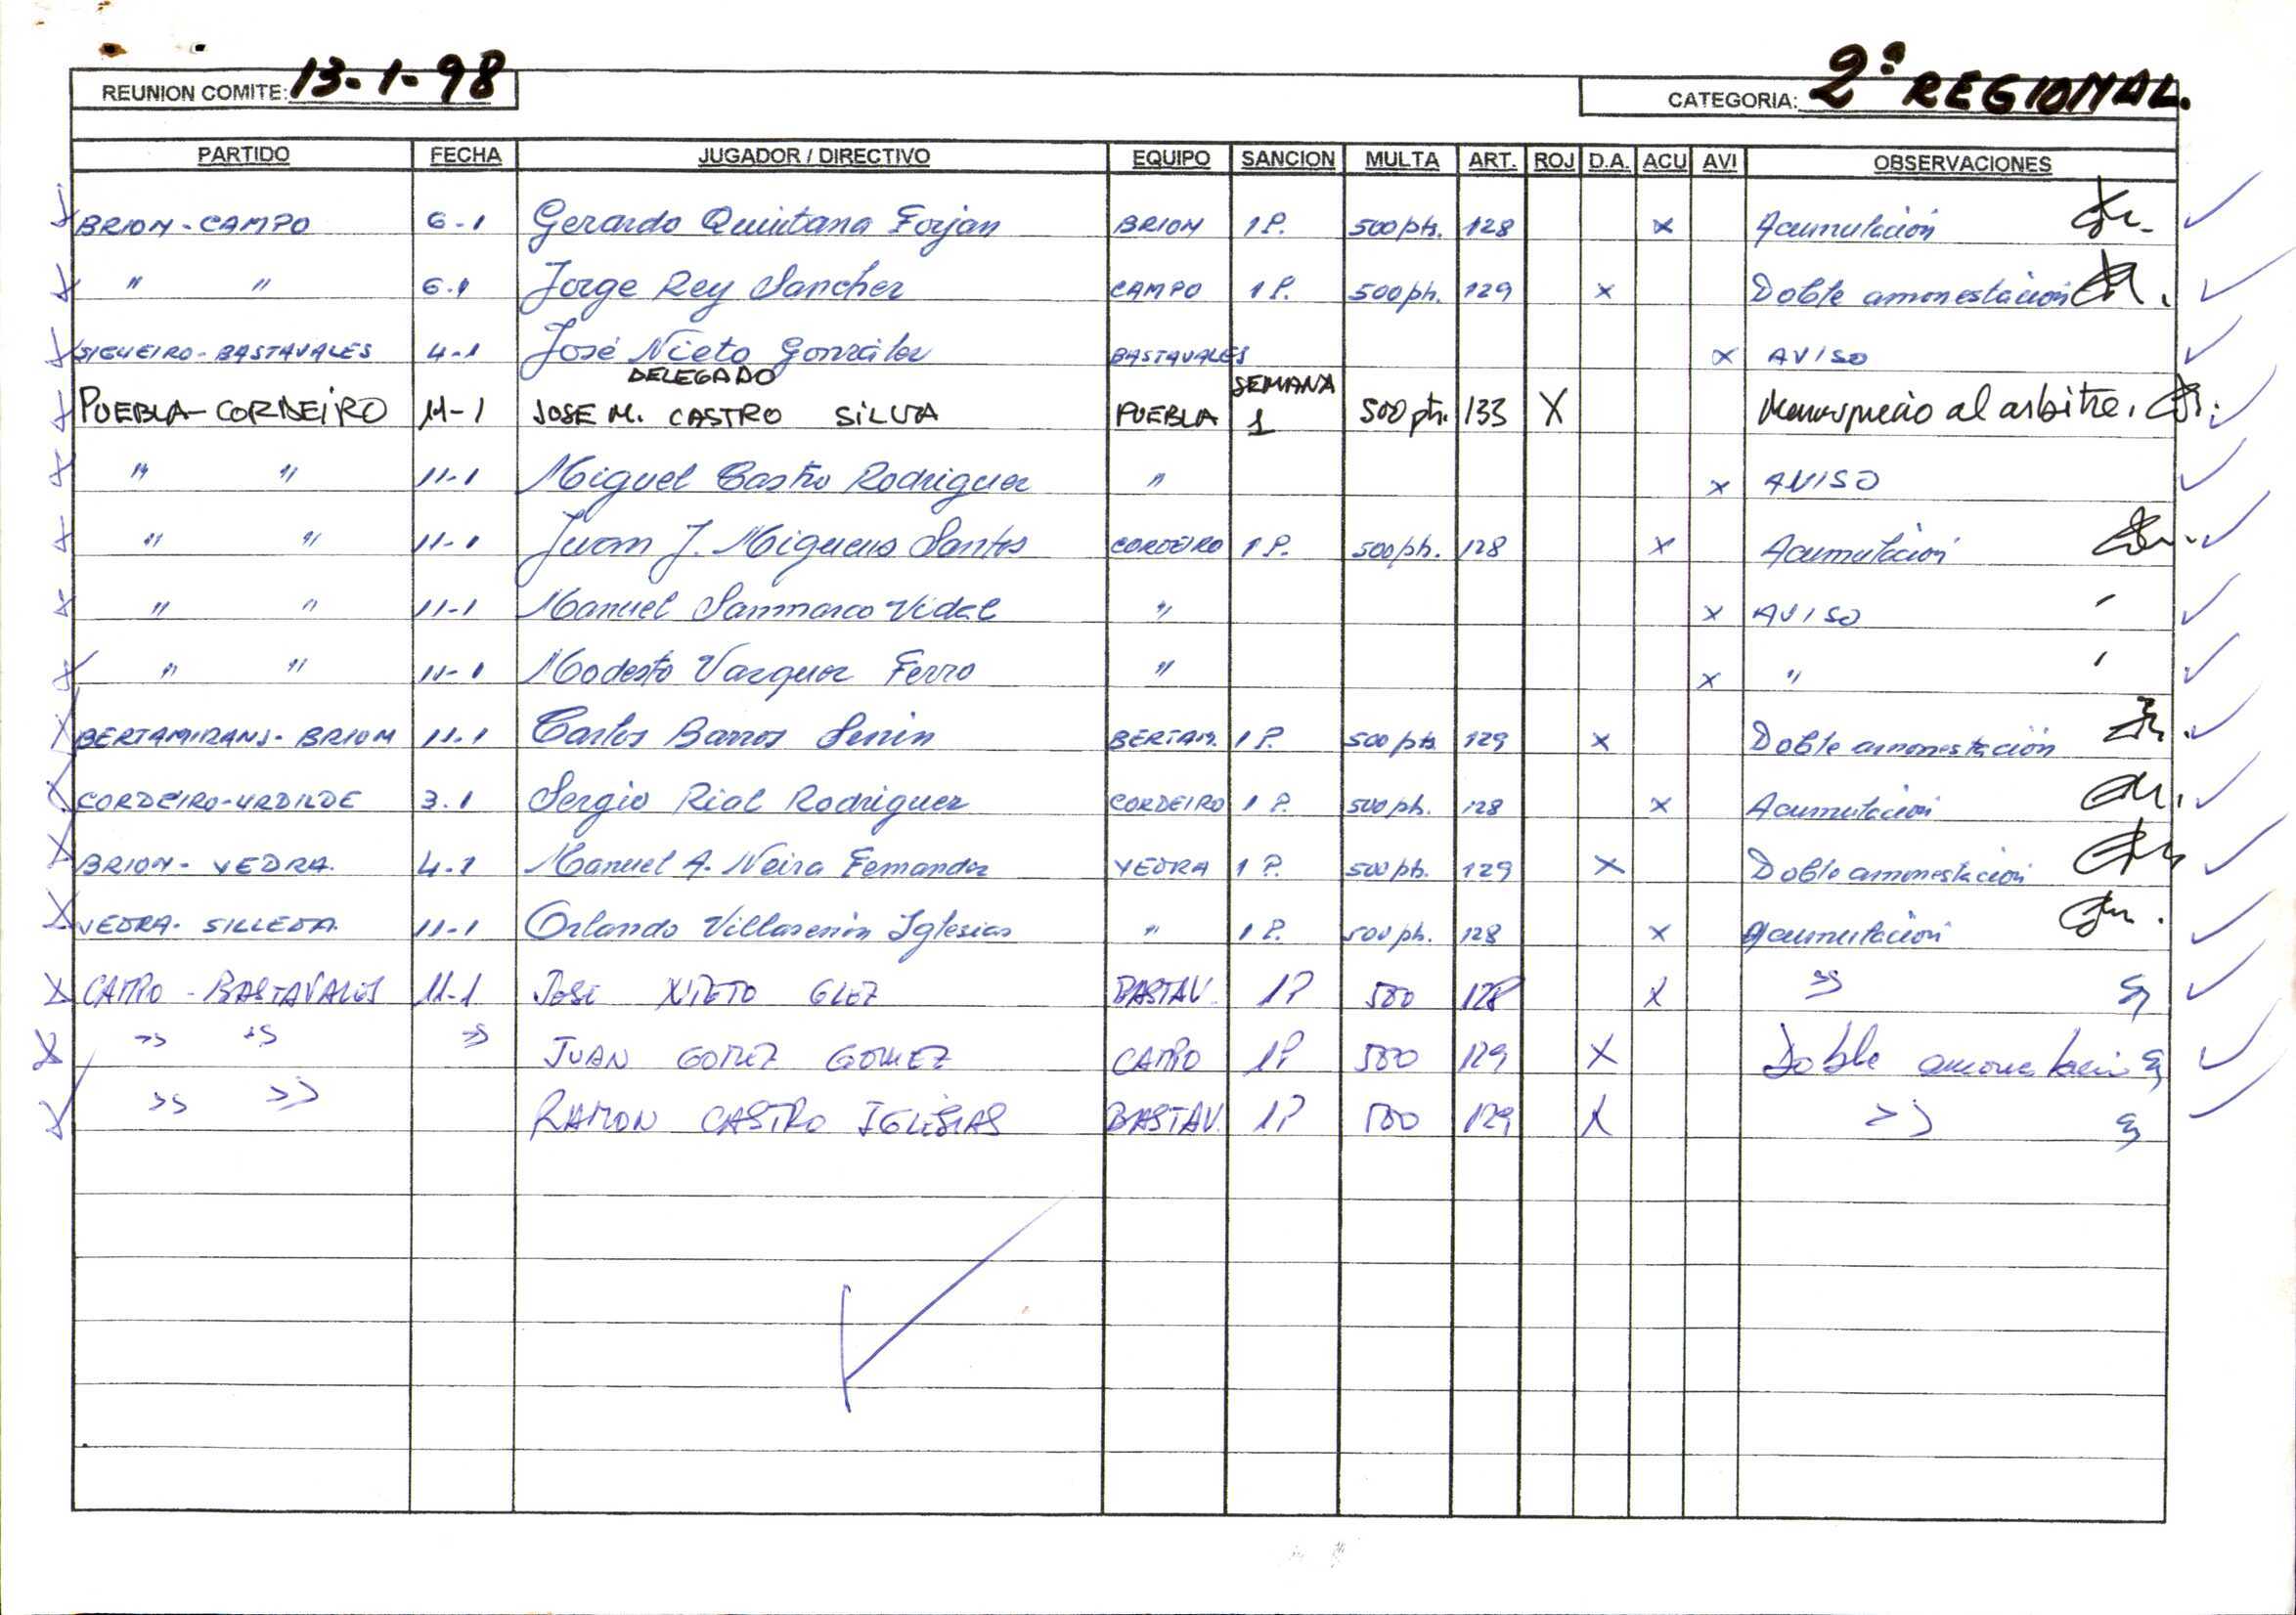 REUNION COMITE: 13-1-98 CATEGORIA: 2ª REGIONAL.
PARTIDO FECHA JUGADOR / DIRECTIVO EQUIPO SANCION MULTA ART. ROJ D.A. ACU AVI OBSERVACIONES
BRION - CAMPO 6-1 Gerardo Quintana Forjan BRION 1 P. 500 pts. 128 x Acumulación
" " 6-1 Jorge Rey Sanchez CAMPO 1 P. 500 pts. 129 x Doble amonestación
SIGUEIRO - BASTAVALES 4-1 José Nieto González BASTAVALES x AVISO
DELEGADO SEMANA
PUEBLA - CORDEIRO 11-1 JOSE M. CASTRO SILVA PUEBLA 1 500 pts. 133 X Menosprecio al arbitro.
" " 11-1 Miguel Castro Rodriguez " x AVISO
" " 11-1 Juan J. Miguens Santos CORDEIRO 1 P. 500 pts. 128 x Acumulación
" " 11-1 Manuel Sanmarco Vidal " x AVISO
" " 11-1 Modesto Vazquez Ferro " x "
BERTAMIRANS - BRION 11-1 Carlos Barros Senin BERTAM. 1 P. 500 pts 129 x Doble amonestación
CORDEIRO - URDILDE 3-1 Sergio Rial Rodriguez CORDEIRO 1 P. 500 pts. 128 x Acumulación
BRION - VEDRA 4-1 Manuel A. Neira Fernandez VEDRA 1 P. 500 pts. 129 x Doble amonestación
VEDRA - SILLEDA 11-1 Orlando Villasenin Iglesias " 1 P. 500 pts. 128 x Acumulación
CAMPO - BASTAVALES 11-1 JOSE NIETO GLEZ BASTAV. 1P 500 128 x "
" " " JUAN GOMEZ GOMEZ CAMPO 1P 500 129 X Doble amonestación
" " RAMON CASTRO IGLESIAS BASTAV. 1P 500 129 X "